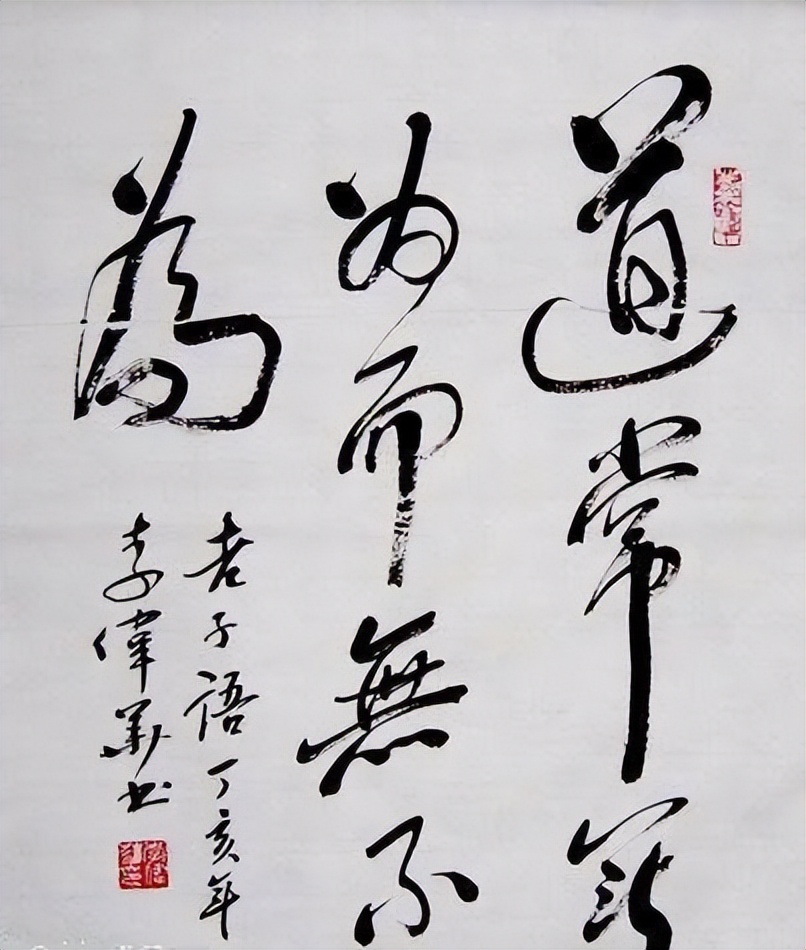 道常無
為而無不
為
老子語丁亥年
李偉華书